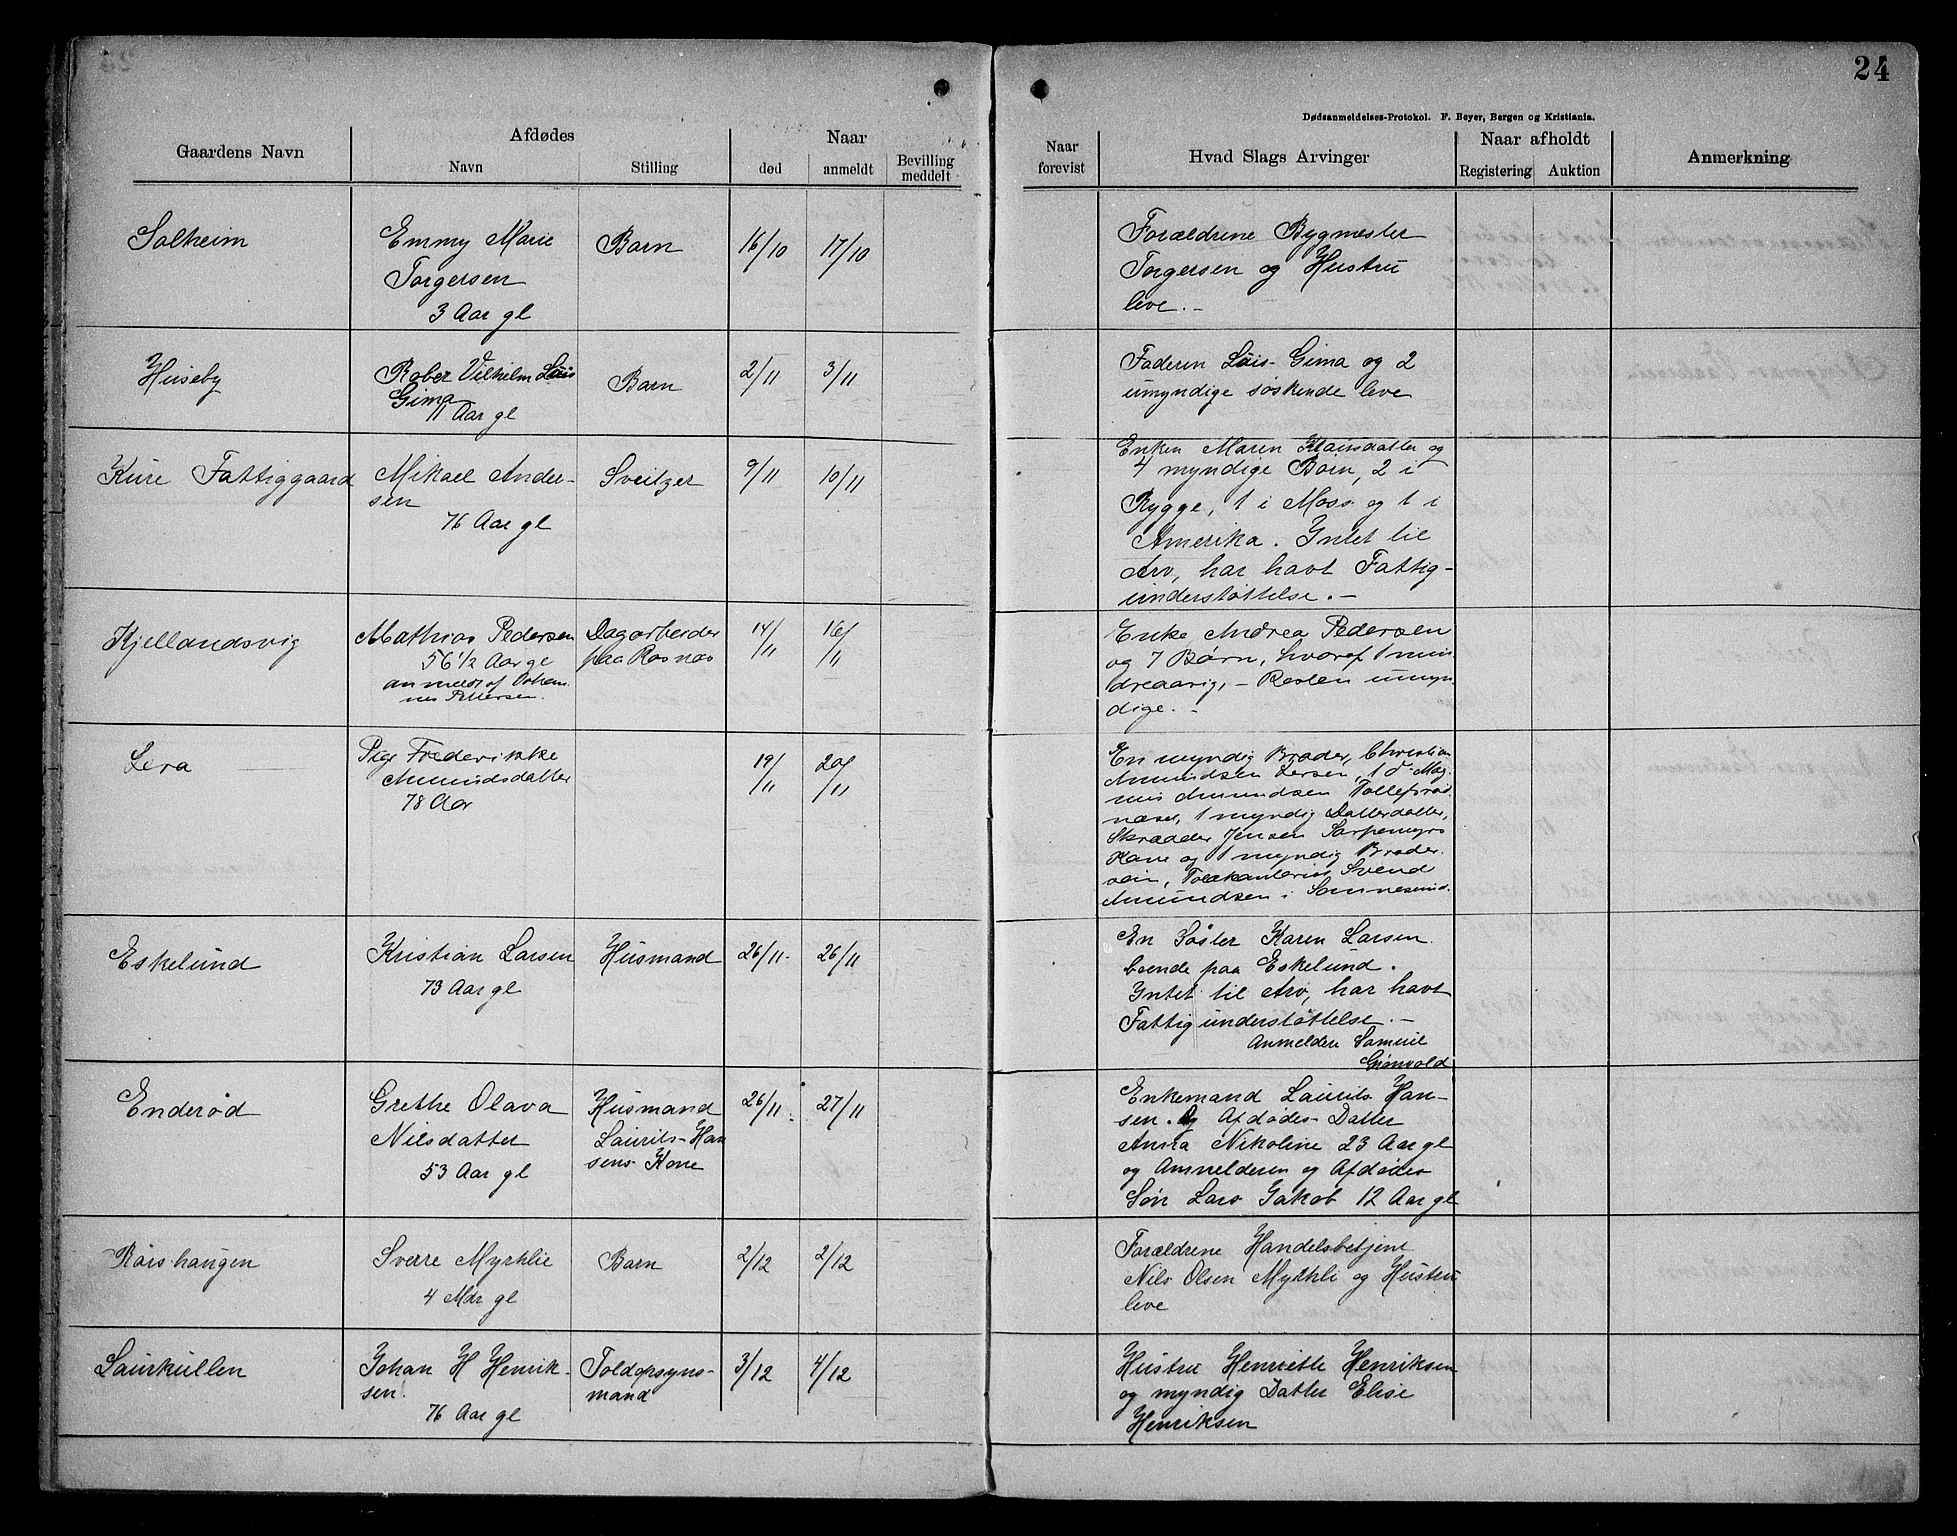 24
Dødsanmeldelses-Protokol. F. Beyer, Bergen og Kristiania.
Gaardens Navn
Afdødes
Navn
Stilling
Naar
død
anmeldt
Bevilling meddelt
Naar forevist
Hvad Slags Arvinger
Naar afholdt
Registering
Auktion
Anmerkning
Solheim
Emmy Marie
Torgersen
3 Aar gl
Barn
16/10
17/10
Forældrene Bygmester
Torgersen og Hustru
leve.-
Huseby
Rober Vilhelm Lais
Gima
11 Aar gl
Barn
2/11
3/11
Faderen Lais Gima og 2
umyndige søskende leve
Kure Fattiggaard
Mikael Ander-
sen
76 Aar gl
Sveitzer
9/11
10/11
Enken Maren Klausdatter og
4 myndige Barn, 2 i
Rygge, 1 i Moss og 1 i
Amerika. Intet til
Arv, har havt Fattig-
understøttelse.-
Kjellandsvig
Mathias Pedersen
56 1/2 Aar gl
anmeldt af Johan-
nes Pettersen.
Dagarbeider
paa Rosnæs
14/11
16/11
Enke Andrea Pedersen
og 7 Børn, hvoraf 1 min-
dreaarig, - Resten umyn-
dige.-
Lera
Pige Frederikke
Amundsdatter
78 Aar
19/11
20/11
En myndig Broder, Christian
Amundsen Lersen, 1 d- Mag-
nus Amundsen Tollefsrød
næset, 1 myndig Datterdatter,
Skrædder Jensen Sarpemyrs
Kone og 1 myndig Broder
søn, Toldkantorist Svend
Amundsen i Sannesund.
Eskelund
Kristian Larsen
73 Aar gl
Husmand
26/11.
26/11
En Søster Karen Larsen
boende paa Eskelund.
Intet til Arv, har havt
Fattigunderstøttelse.-
Anmelder Samuel
Grønvold
Enderød
Grethe Olava
Nilsdatter
53 Aar gl
Husmand
Laurits Han
sens Kone
26/11.
27/11
Enkemand Laurits Han-
sen. Og Afdødes Datter
Anna Nikoline 23 Aar gl
og Anmelderen og Afdødes
Søn Lars Jakob 12 Aar gl
Roishaugen
Sverre Myrhlie
4 Mdr gl
Barn
2/12
2/12
Forældrene Handelsbetjent
Nils Olsen Myrhli og Hustru
leve
Laurkullen
Johan H Henrik-
sen.
76 Aar gl
Toldopsyns-
mand
3/12
4/12
Hustru Henriette Henriksen
og myndig Datter Elise
Henriksen